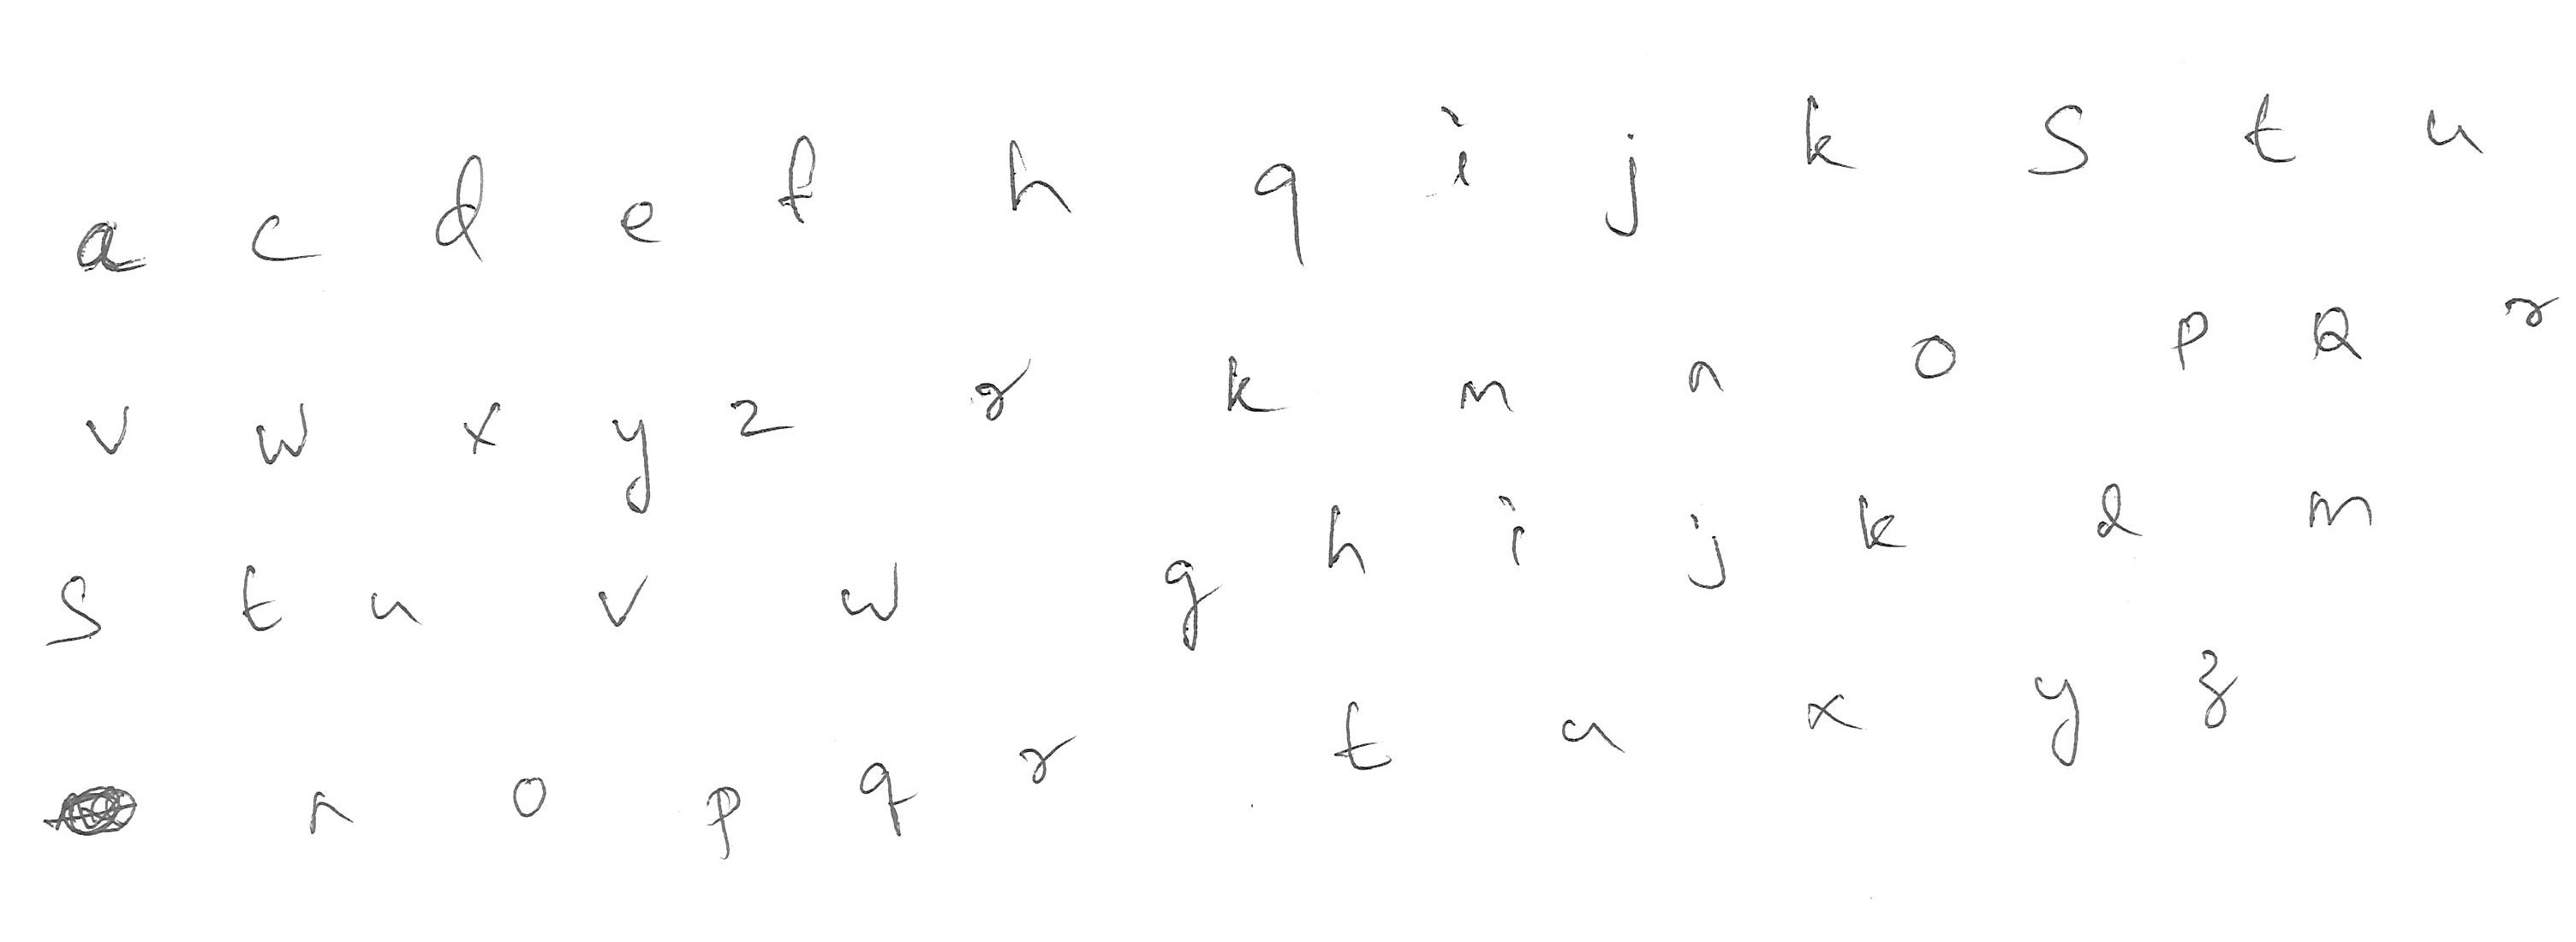 a c d e f h q i j k s t u
v w x y z r k m n o p Q r
s t u v w g h i j k l m
n o p q r t u x y z